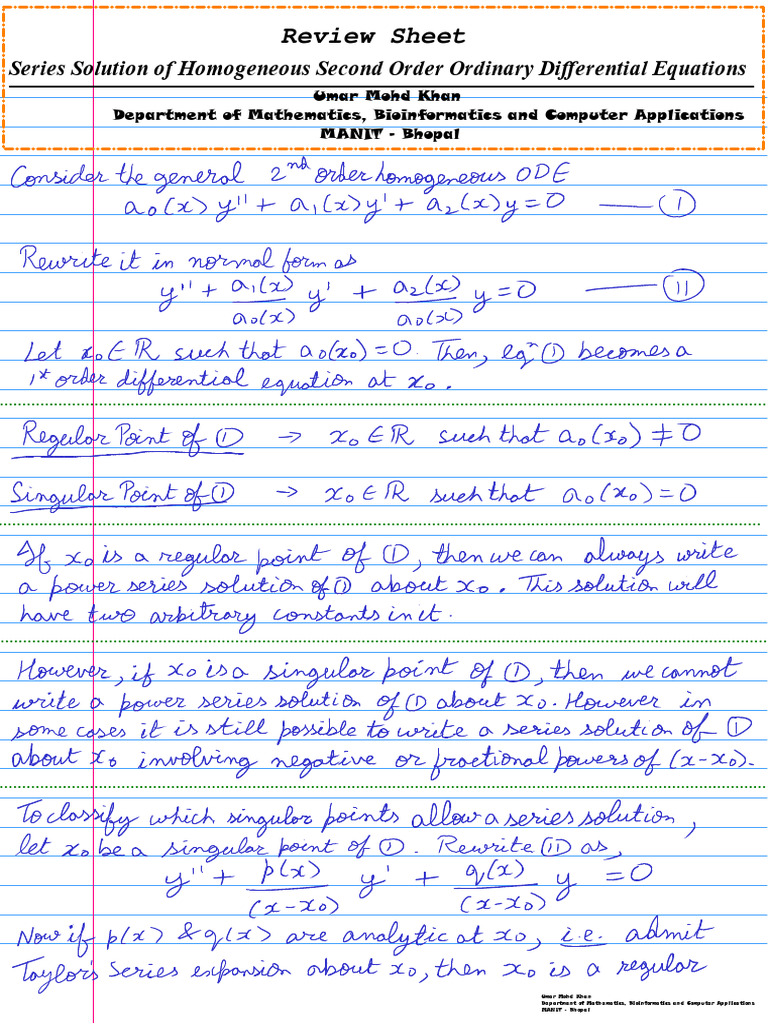 Review Sheet
Series Solution of Homogeneous Second Order Ordinary Differential Equations
Umar Mohd Khan
Department of Mathematics, Bioinformatics and Computer Applications
MANIT - Bhopal
Consider the general 2nd order homogeneous ODE
a0(x) y'' + a1(x) y' + a2(x) y = 0 — (I)
Rewrite it in normal form as
y'' + a1(x)/a0(x) y' + a2(x)/a0(x) y = 0 — (II)
Let x0 ∈ ℝ such that a0(x0) = 0. Then, eqn (I) becomes a
1st order differential equation at x0.
Regular Point of (I) → x0 ∈ ℝ such that a0(x0) ≠ 0
Singular Point of (I) → x0 ∈ ℝ such that a0(x0) = 0
If x0 is a regular point of (I), then we can always write
a power series solution of (I) about x0. This solution will
have two arbitrary constants in it.
However, if x0 is a singular point of (I), then we cannot
write a power series solution of (I) about x0. However in
some cases it is still possible to write a series solution of (I)
about x0 involving negative or fractional powers of (x-x0).
To classify which singular points allow a series solution,
let x0 be a singular point of (I). Rewrite (II) as,
y'' + p(x)/(x-x0) y' + q(x)/(x-x0) y = 0
Now if p(x) & q(x) are analytic at x0, i.e. admit
Taylor's Series expansion about x0, then x0 is a regular
Umar Mohd Khan
Department of Mathematics, Bioinformatics and Computer Applications
MANIT - Bhopal